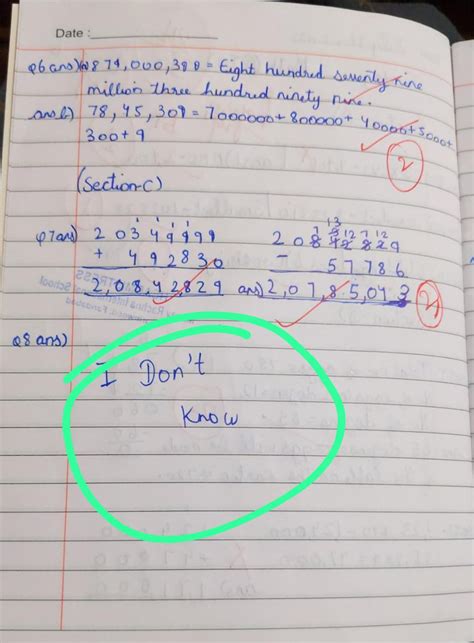 Date :
Q6 ans) a) 879,000,399 = Eight hundred seventy nine
million three hundred ninety nine.
ans b) 78,45,309 = 7000000+800000+40000+5000+
300+9
2
(Section-C)
Q7 ans) 20349999 20842829
+ 492830 - 57786
2,08,42829 ans) 2,07,8,5,043
Q8 ans)
I Don't
Know